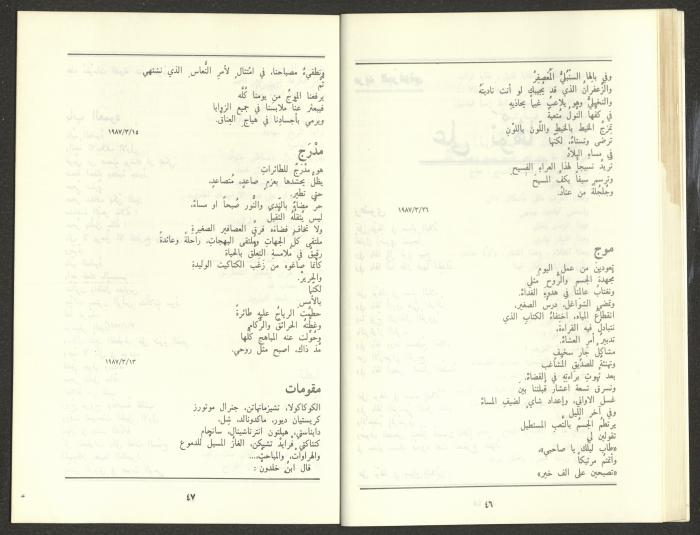 وفي بالها السُنْبُليُّ المُعَصفِرْ
والزَّعفرانُ الذي قد يُجيبكِ لو أنت ناديتَهُ
في كفّها النَّولُ مُتعبةً
تمزجُ الخيطَ بالخيطِ واللّونَ باللّونِ
ترضى وتستاءُ. لكنّها
في مساءِ البلادْ
تريدُ نسيجاً لهذا العراءِ الفسيحِ
وترسم سيفاً بكفّ المسيحْ
وجُلجُلةً من عنادْ.
١٩٨٧/٣/٢٦
موج
تعودين من عملِ اليومِ
مجهدةَ الجسمِ والرُّوحِ مثلي
ونغتابُ عالمَنا في هدوءِ الغداءْ.
وتمضي الشواغل، درسُ الصغيرِ.
انقطاعُ المياه، اختفاءُ الكتابِ الذي
نتبادلُ فيه القراءةَ،
تدبيرُ أمرِ العشاءْ.
مشاكلُ جارٍ سخيفٍ
وتهنئةٌ للصديقِ المشاغبِ
بعد ثبوتِ براءتهِ في القضاءْ.
ونسرقُ تسعةَ أعشارِ قبلتنا بين
غسلِ الأواني، وإعدادِ شايٍ لضيفِ المساءْ
وفي آخر اللّيلِ
يرتطمُ الجسمُ بالتعبِ المستطيلِ
تقولين لي
«طابَ ليلك يا صاحبي»،
وأتمتمُ مرتبكاً
«تصبحين على ألف خير»
٤٦
ونطفيءُ مصباحنا، في امتثالٍ لأمرِ النُّعاس الذي نشتهي
ثمَّ
يرفعنا الموجُ من يومنا كُلِّه
فيبعثر عنّا ملابسنا في جميع الزوايا
ويرمي بأجسادِنا في هياجِ العناقْ.
١٩٨٧/٣/١٥
مدْرَج
هو مدْرَجٌ للطائراتِ
يظلّ يحتشدها بعزمٍ صاعدٍ مُتصاعدٍ،
حتى تطير.
حرٌّ مضاءٌ بالنّدى والنُّور صُبحاً أو مساءْ.
ليس يُثقلهُ الثقيلُ
ولا تخاف فضاءَه فرقُ العصافيرِ الصغيرةِ
ملتقى كلّ الجهاتِ وملتقى البهجاتِ، راحلةً وعائدةً
رقيقٌ في مُلامسةِ التعلّقِ بالحياة
كأنّما صاغوه من زَغَبِ الكتاكيتِ الوليدةِ
والحريرْ.
لكنّها
بالأمسِ
حطّمتِ الرياحُ عليهِ طائرةً
وغطّتهُ الحرائقُ والرُّكامُ
وحُوِّلَتْ عنه المباهجُ كلُّها
مذ ذاك، أصبح مثل روحي.
١٩٨٧/٣/١٣
مقومات
الكوكاكولا، تشيزمانهاتن، جنرال موتورز
كريستيان ديور، ماكدونالد، شِل،
دايناستي، هيلتون انترناشينال، سانجام
كنتاكي فرايد تشيكن، الغازُ المسيلُ للدموع
والهراواتُ، والمباحثُ...
قال ابنُ خلدون:
٤٧